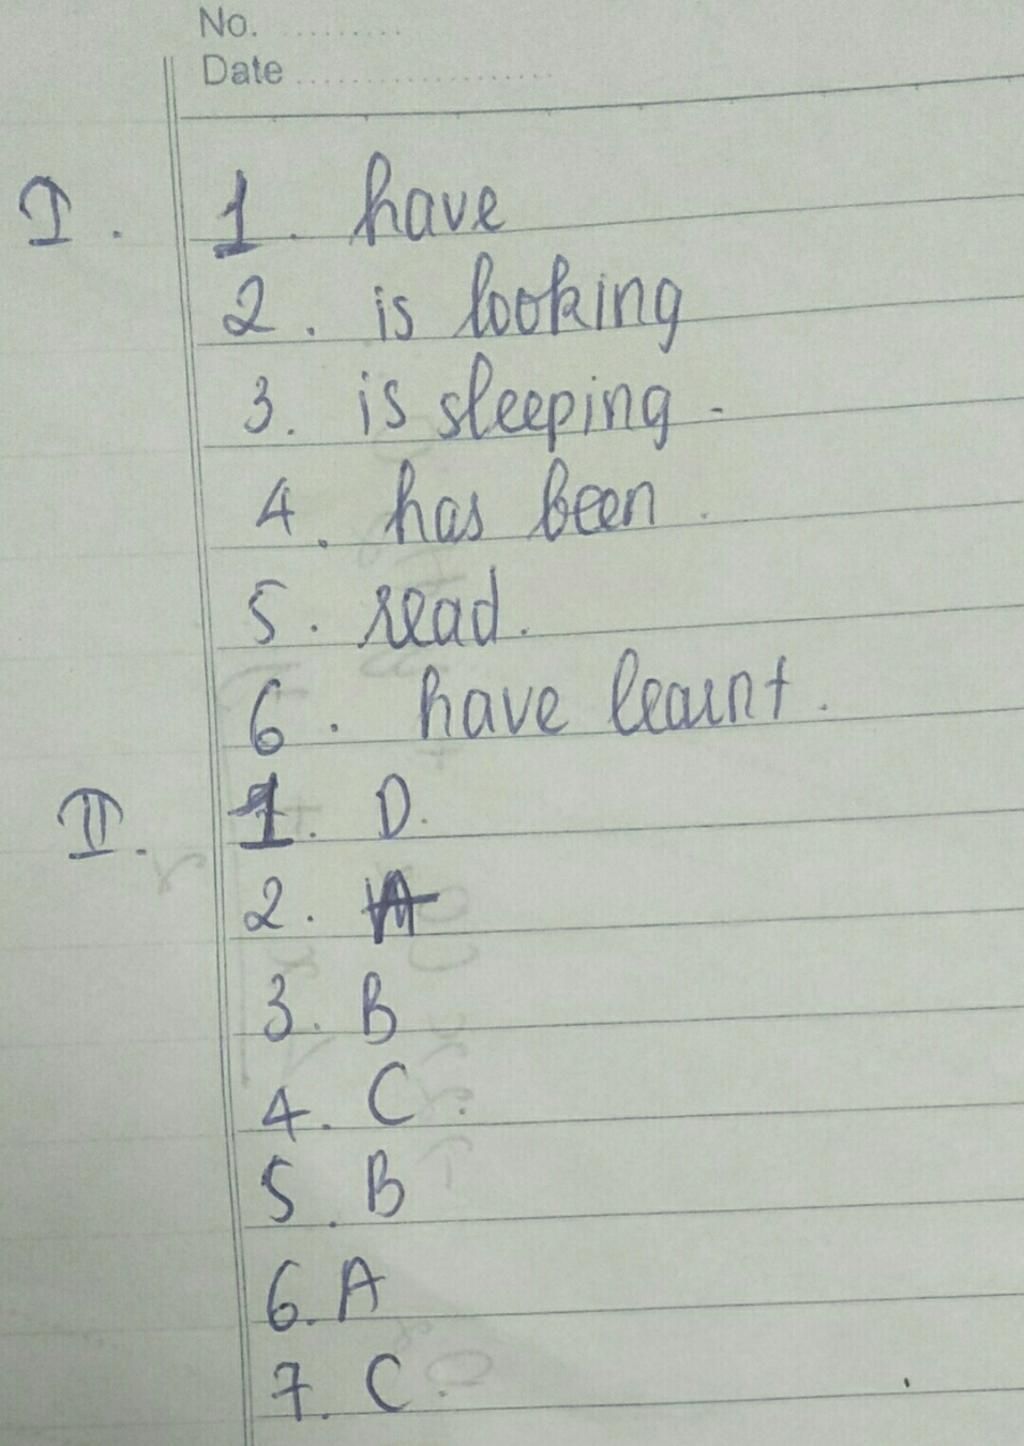 No. ..........
Date ....................
I. 1. have
2. is looking
3. is sleeping.
4. has been.
5. read.
6. have learnt.
II. 1. D.
2. A
3. B
4. C.
5. B
6. A
7. C.